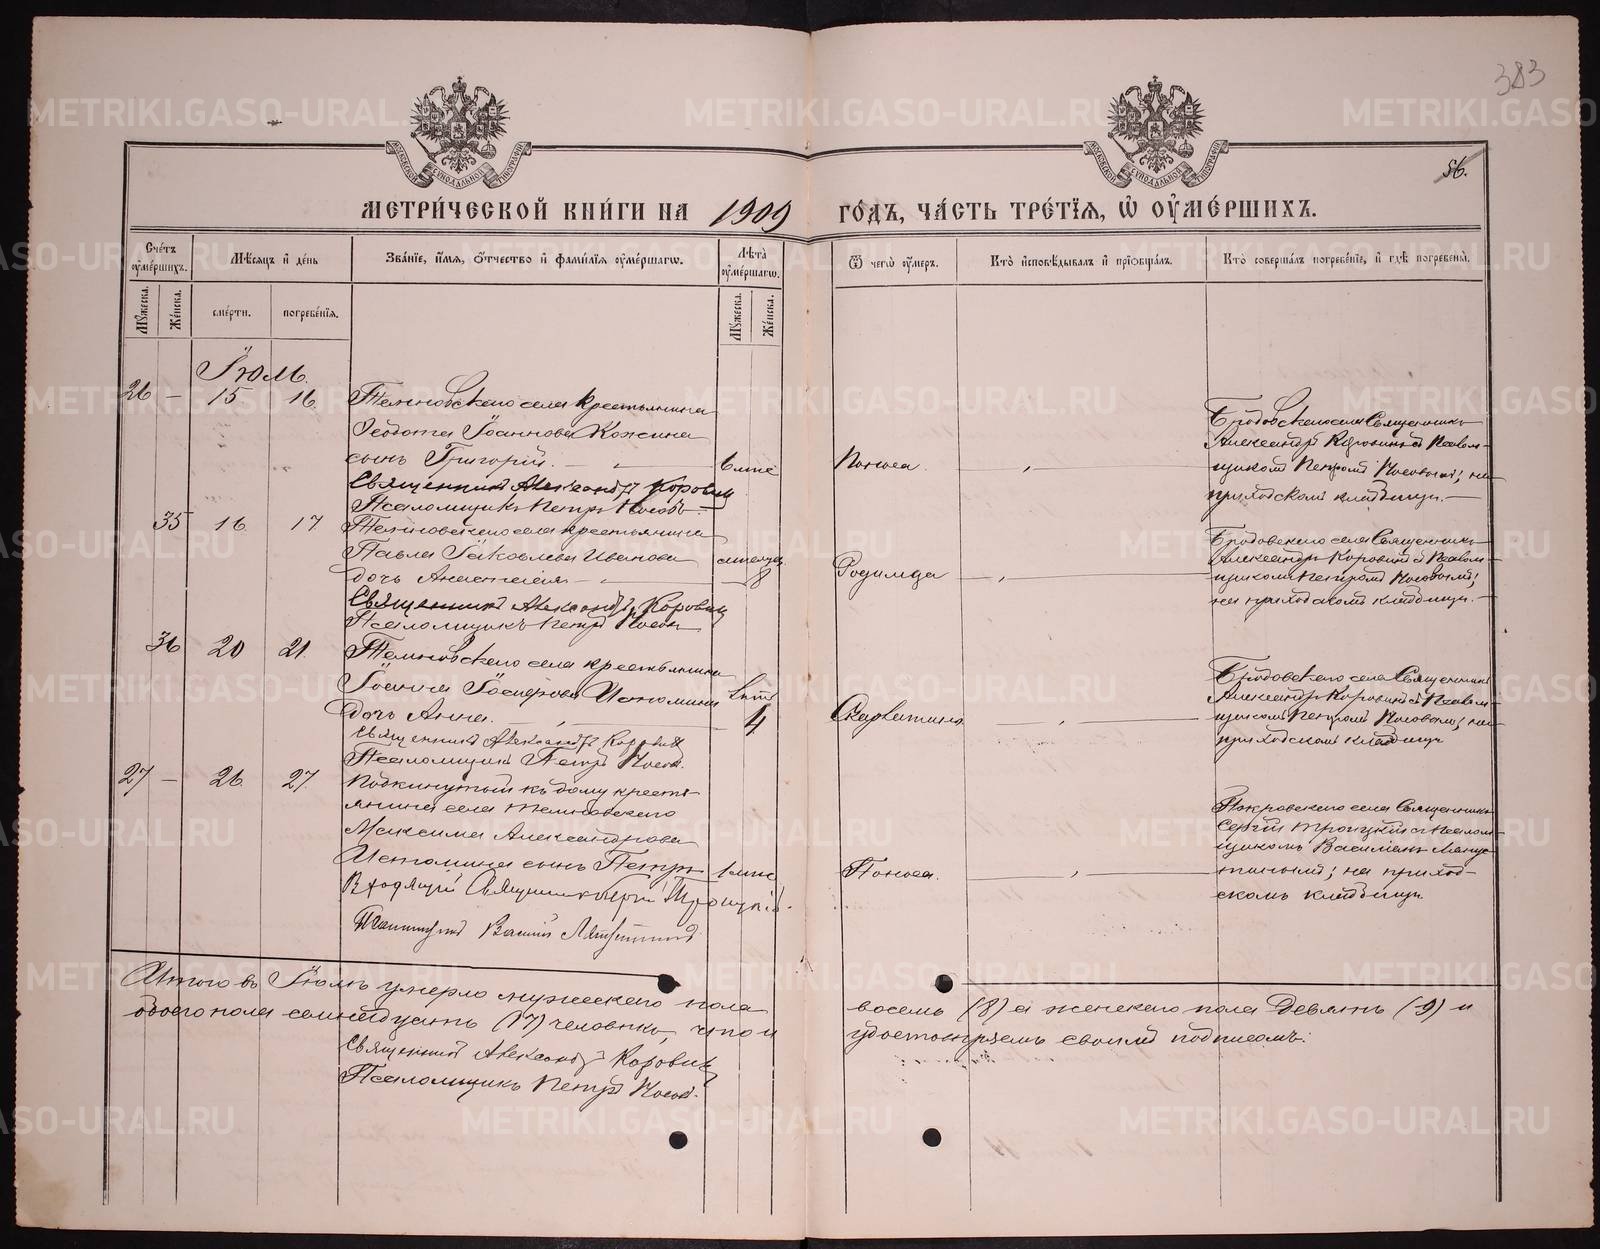 383
56.
МЕТРИЧЕСКОЙ КНИГИ НА 1909 ГОДЪ, ЧАСТЬ ТРЕТІЯ, Ѿ ОУМЕРШИХЪ.
Счетъ оумершихъ.
Мѣсяцъ и день
Званіе, имя, отчество и фамилія оумершагѡ.
Лѣта оумершагѡ.
Ѿ чегѡ оумеръ.
Кто исповѣдывалъ и пріобщалъ.
Кто совершалъ погребеніе, и гдѣ погребены.
Мужеска.
Женска.
смерти.
погребенія.
Мужеска.
Женска.
Іюль.
26 — 15 16.
Темновскаго села крестьянина
Ѳеодота Іоаннова Кожина
сынъ Григорій. —
Священникъ Александръ Коровинъ
Псаломщикъ Петръ Носовъ
Поноса.
Бродовскаго села Священникъ
Александръ Коровинъ съ Псалом-
щикомъ Петромъ Носовымъ; на
приходскомъ кладбищѣ. —
35 16 17
Темновскаго села крестьянина
Павла Іаковлева Иванова
дочь Анастасія —
8
Священникъ Александръ Коровинъ
Псаломщикъ Петръ Носовъ
Родимца
Бродовскаго села Священникъ
Александръ Коровинъ съ Псалом-
щикомъ Петромъ Носовымъ;
на приходскомъ кладбищѣ. —
36 20 21.
Темновскаго села крестьянина
Іоанна Іосифова Истомина
дочь Анна. —
4
Священникъ Александръ Коровинъ
Псаломщикъ Петръ Носовъ.
Скарлатина
Бродовскаго села Священникъ
Александръ Коровинъ съ Псалом-
щикомъ Петромъ Носовымъ; на
приходскомъ кладбищѣ
27 — 26. 27.
Подкинутый къ дому кресть-
янина села Темновскаго
Максима Александрова
Истомина сынъ Петръ
Входящій Священникъ Сергій Троицкій.
Псаломщикъ Василій
Поноса.
Покровскаго села Священникъ
Сергій Троицкій съ Псалом-
щикомъ Василіемъ
на приход-
скомъ кладбищѣ.
Итого въ Іюлѣ умерло мужескаго пола восемь (8) а женскаго пола девять (9) и
обоего пола семнадцать (17) человѣкъ, что и удостовѣряемъ своимъ подписомъ:
Священникъ Александръ Коровинъ
Псаломщикъ Петръ Носовъ.
METRIKI.GASO-URAL.RU